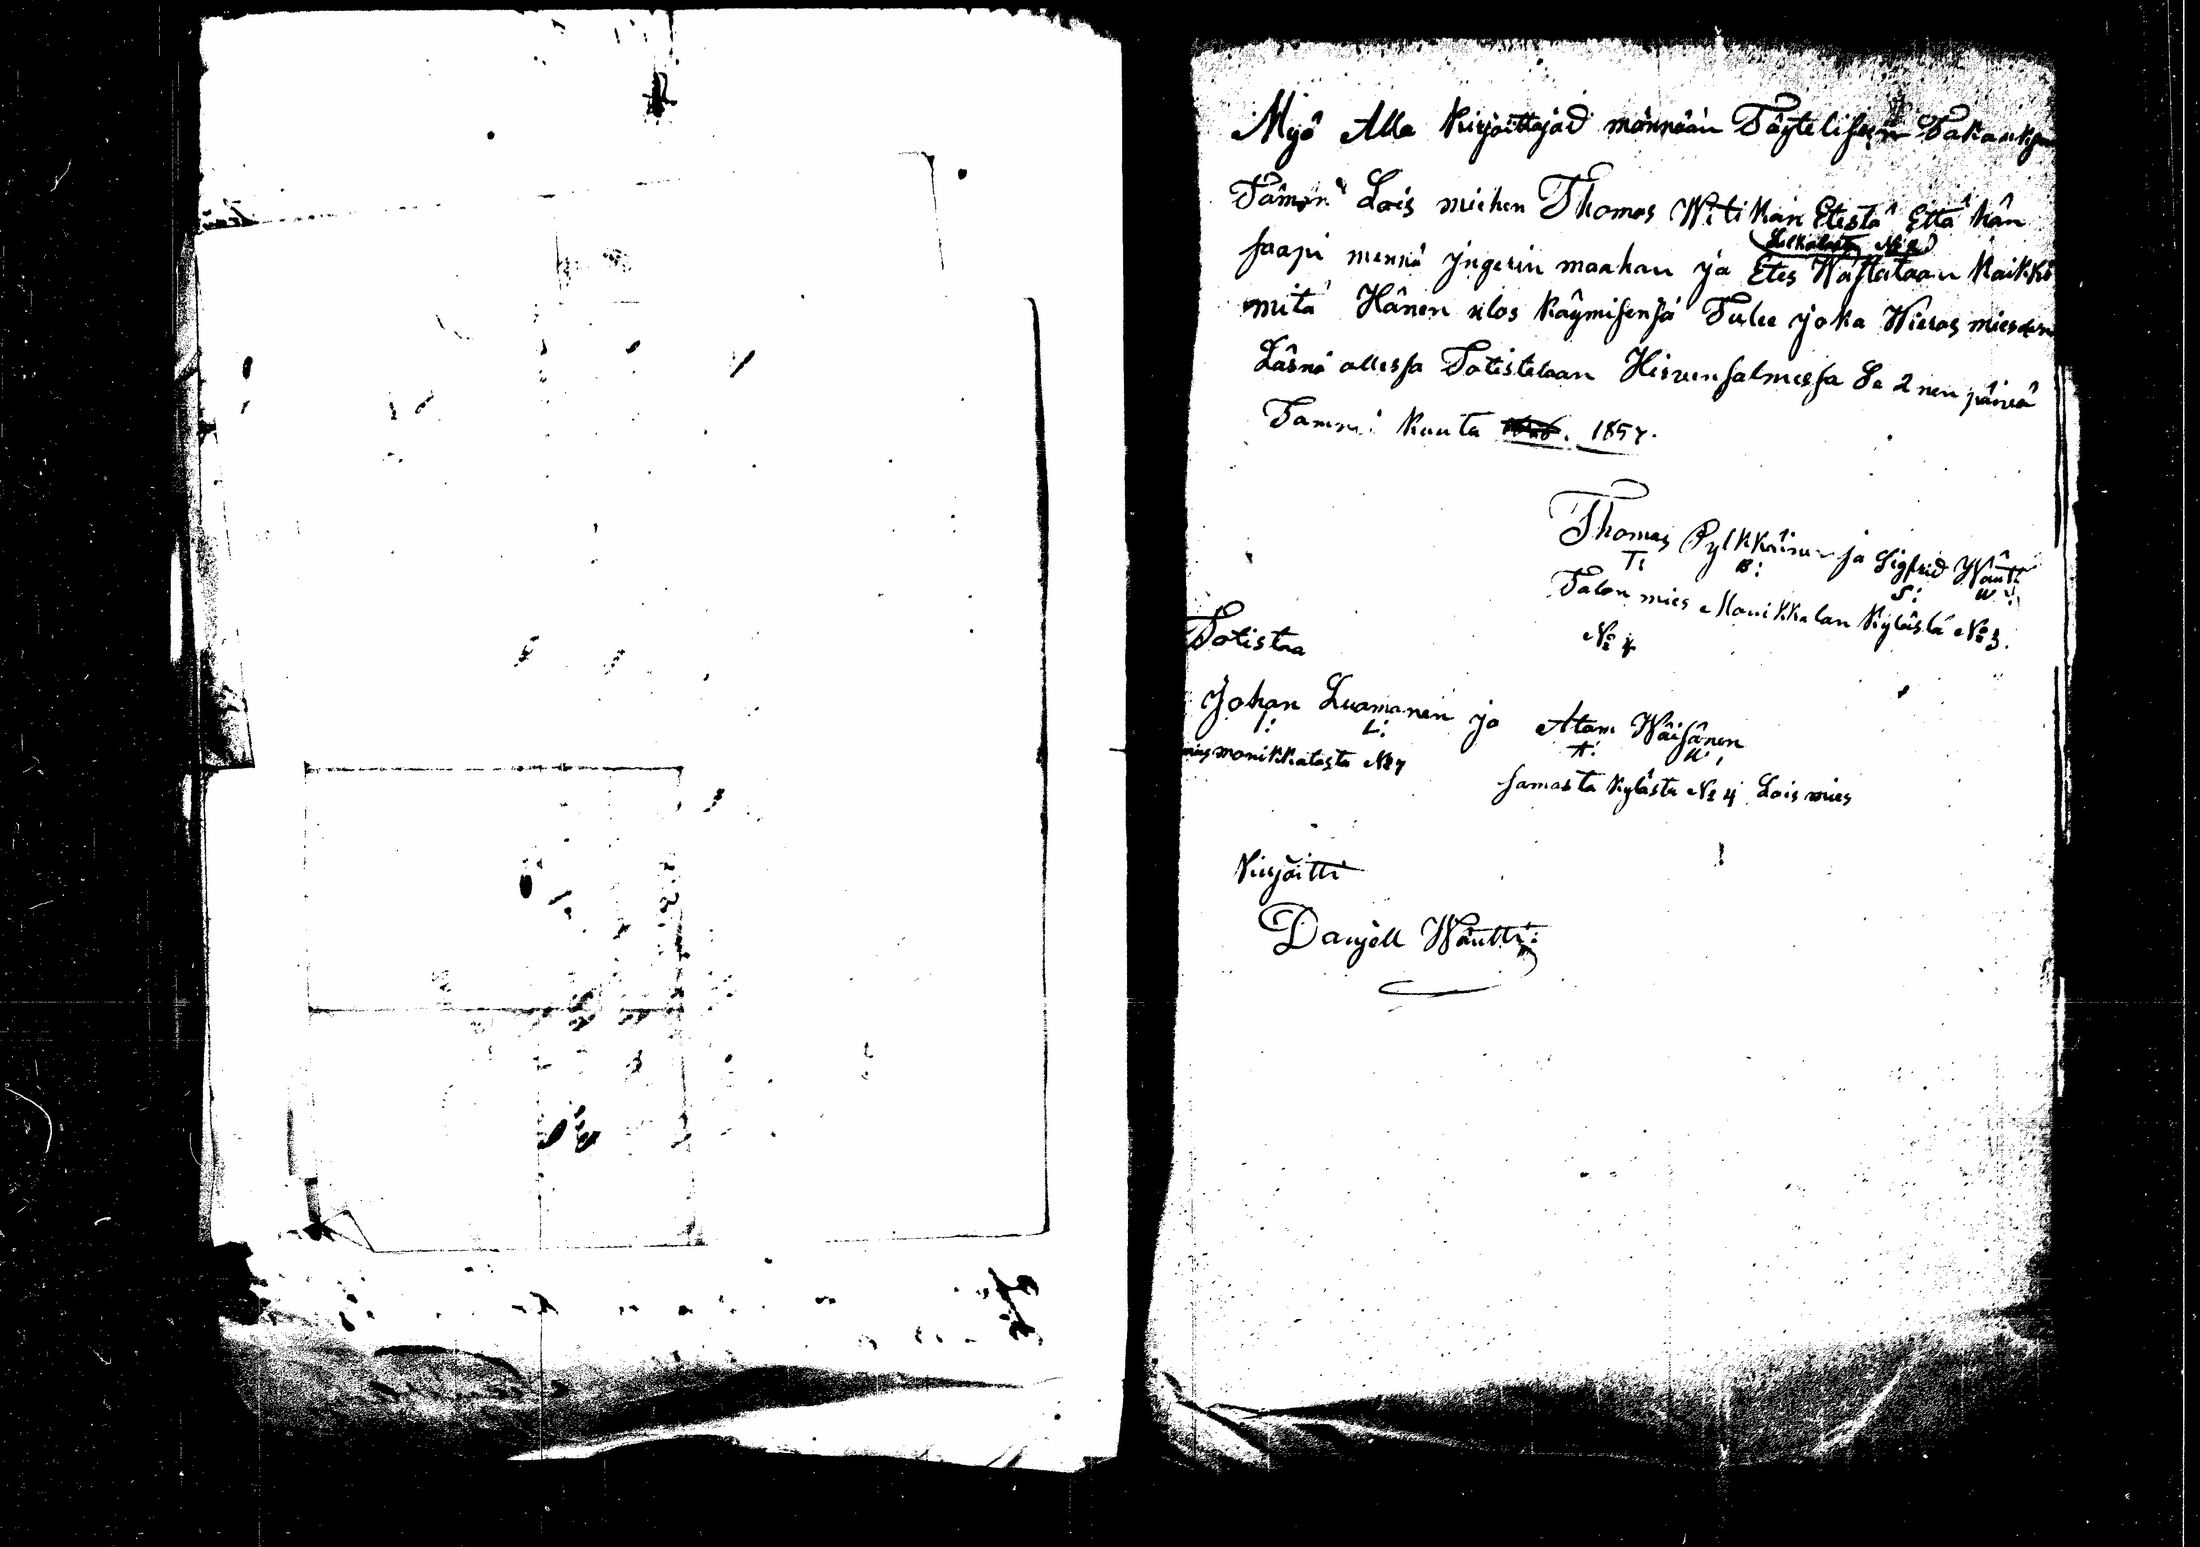 Myö Alla Kirjoittajad männään Täytelisehen Takaukseen
Tämän Lois miehen Thomas Witikän Etestä Että hän
Selkälästä № 2
saapi mennä yngerin maahan ja Etes Wastataan Kaikki
mitä Hänen ulos Käymisensä Tulee joka Wieras miesten
Läsnä ollessa Totistetaan Hirvensalmessa Se 2 nen päivä
Tammi Kuuta 1857.
Thomas Pylkkäinen ja Sigfrid Wäntti
T: P: S: W:
Talon mies Monikkalan Kylästä № 3.
№ 4
Totistaa
Johan Luomanen ja Atam Wäisänen
J: L: A: W:
mies monikkalasta № 7
samasta Kylästä № 4 Lois mies
Kirjoitti
Danjell Wäntti: